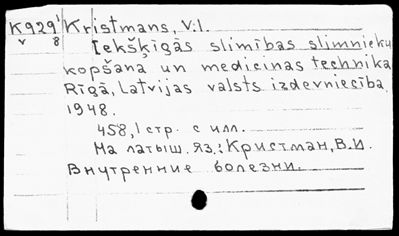 K929 Kristmans, V.I.
v 8 Iekšķīgās slimības slimnieku
kopšana un medicinas technika
Rīgā, Latvijas valsts izdevniecība.
1948.
458,1 стр. с илл.
На латыш. яз.: Кристман, В.И.
Внутренние болезни.